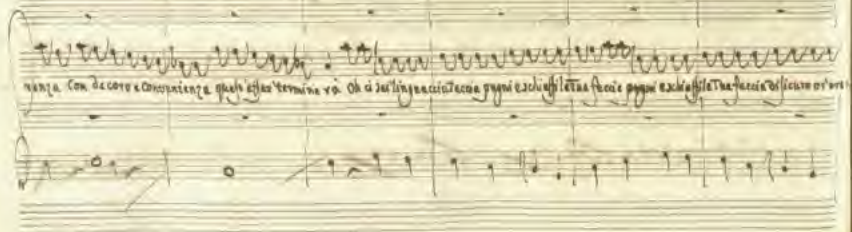 nanza con decoro e convenienza quest'affar terminerò Oh ci sei linguaccia Taccia pugni e schiaffi la Tua faccia pugni e schiaffi la Tua faccia di sicuro